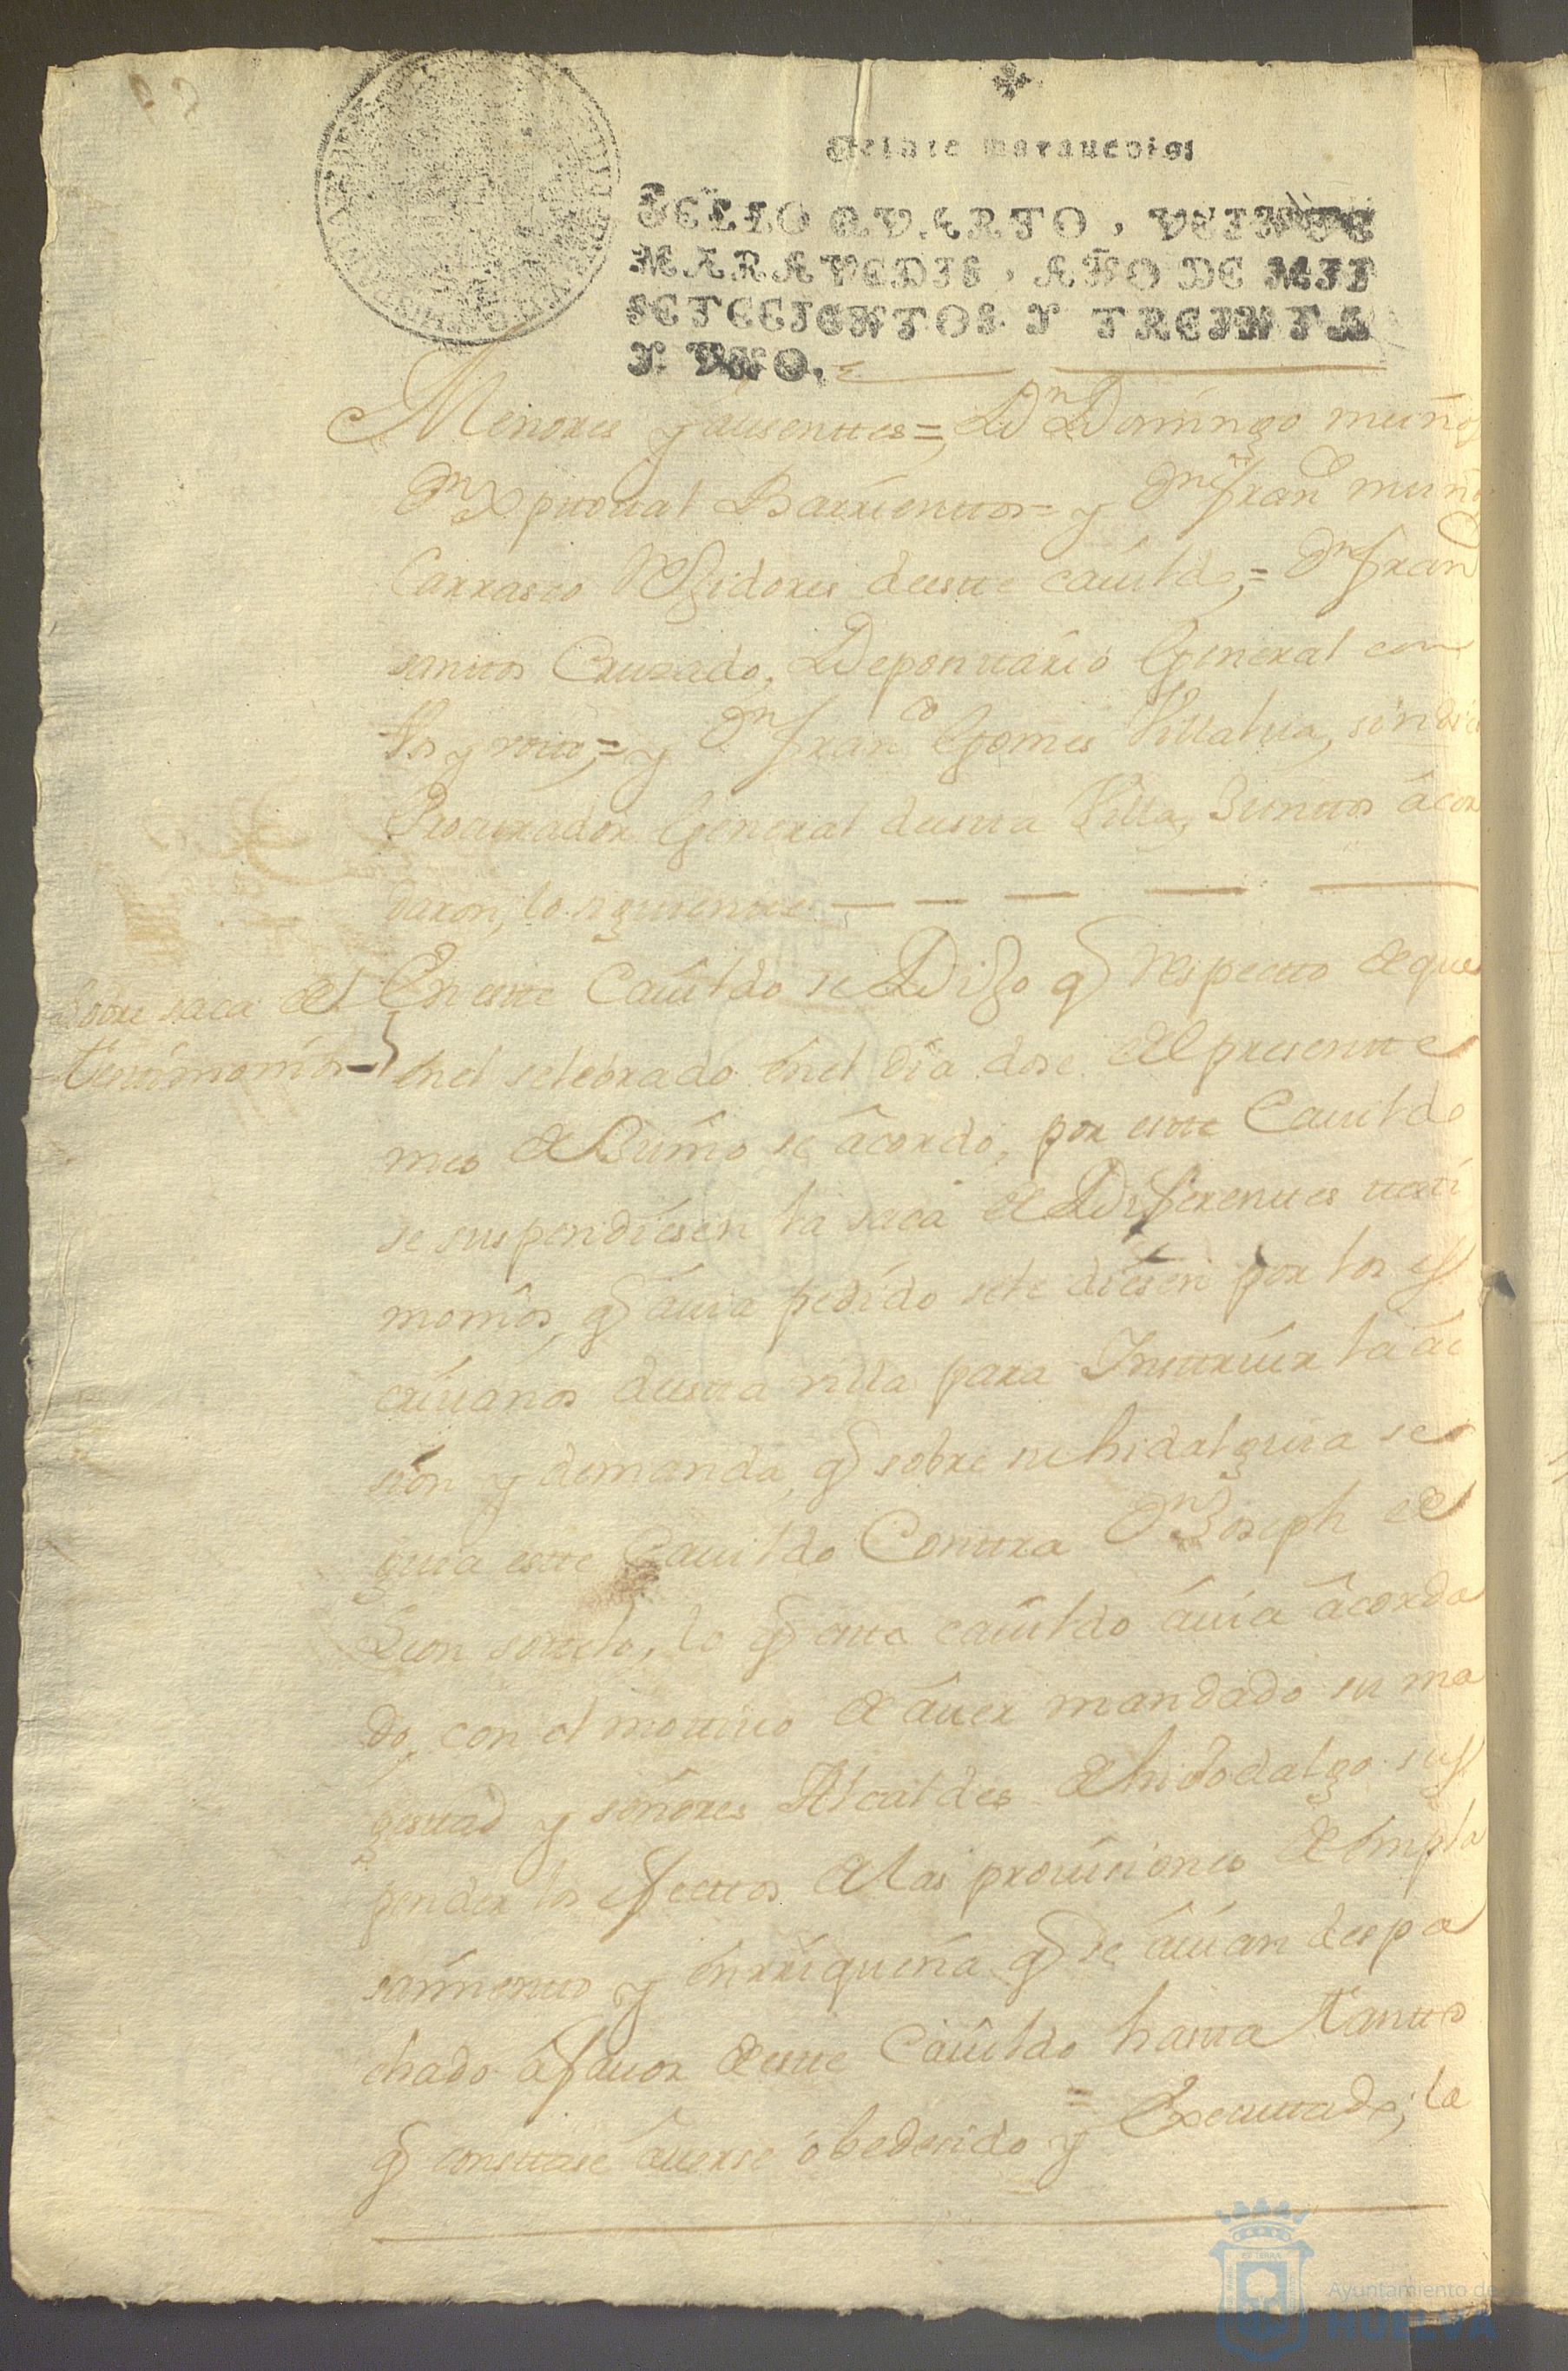 Veinte marauedis
SELLO QVARTO, VEINTE
MARAVEDIS, AÑO DE MIL
SETECIENTOS Y TREINTA
Y VNO.
Menores y ausenttes = Dn Domingo muños
Dn Xpttoual Barrienttos = y Dn Franco muños
Carrasco Regidores deestte cauildo, = Dn Franco
santtos Cruzado, Deposittario General con
Vos y votto, = y Dn Franco Gomes Villalua, sindico
Procurador General destta Villa, Junttos acor
daron, lo siguientte
Sobre saca del
ttesttimonios
En estte Cauildo se Dijo q respectto de que
en el selebrado en el dia dose del presentte
mes de Junio se acordo, por estte Cauildo
se suspendiesen la saca de Diferenttes ttesti
monios, q auia pedido se le diesen por los es
criuanos destta villa para Insttruir la ac
sion y demanda, q sobre su hidalguia se
guia estte Cauildo Conttra Dn Joseph de
Leon sotelo, lo q estte cauildo auia acorda
do, con el mottiuo de auer mandado su ma
gesttad y señores Alcaldes de hijodalgo sus
pender los efecttos de las prouisiones de empla
samientto y enrriqueña q se auian despa
chado a fauor de estte Cauildo hastta ttantto
q consttase auerse obedesido = y Executtado, la
Ayuntamiento de
HUELVA